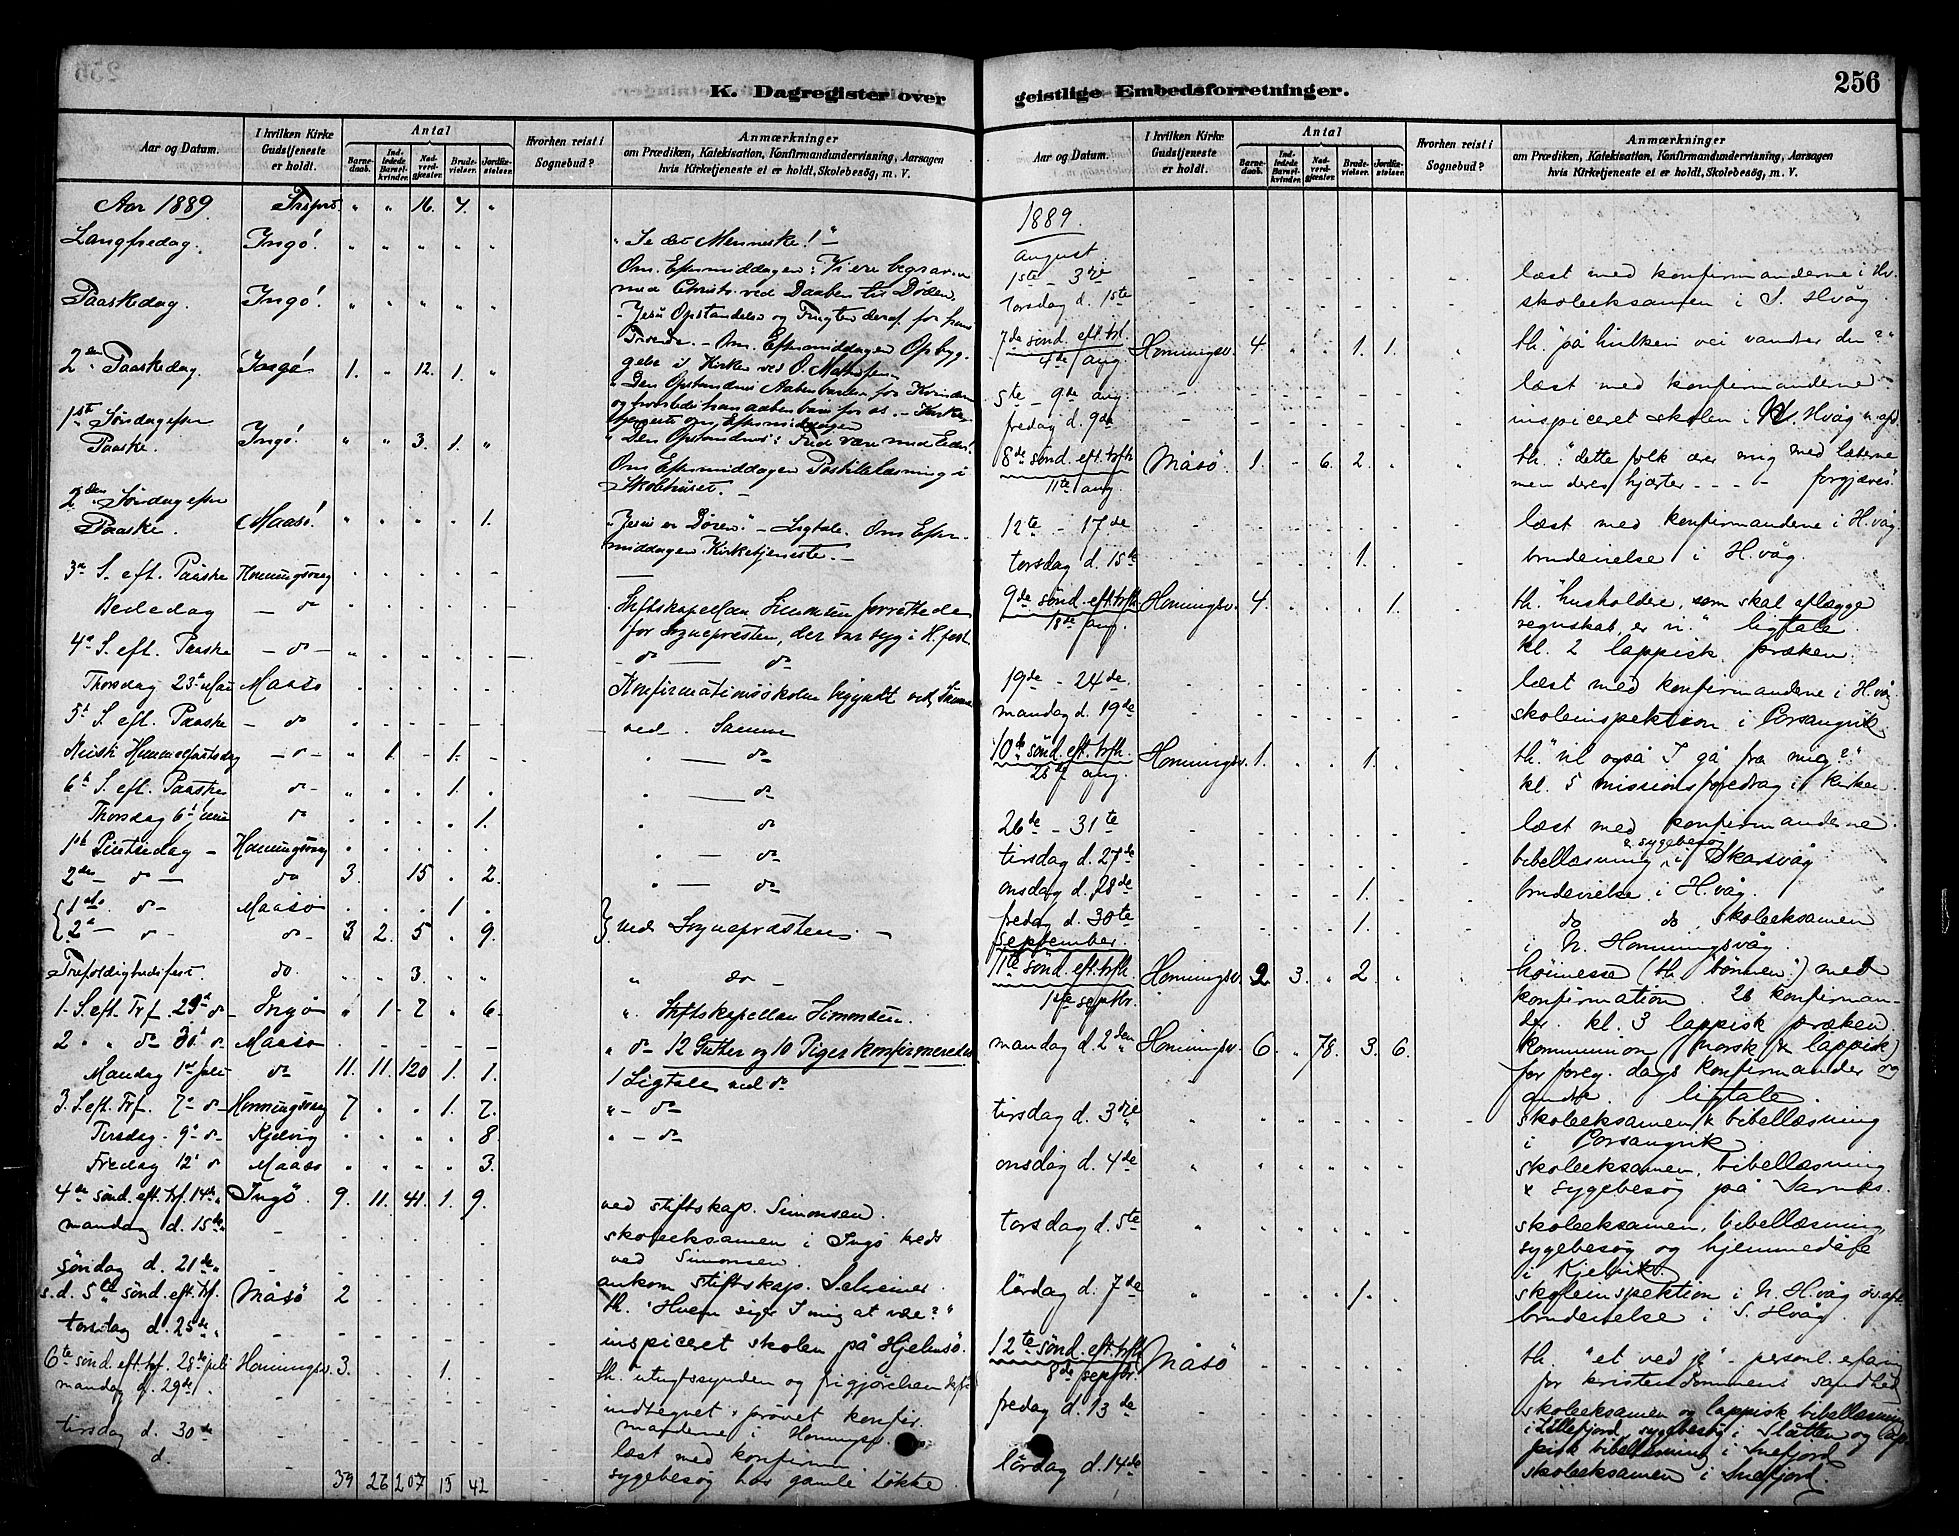 256
K. Dagregister over
Aar og Datum.
I hvilken Kirke Gudstjeneste er holdt.
Antal
Barnedaab.
Indledede Barselkvinder.
Nadverdgjester.
Brudevielser.
Jordfæstelser.
Hvorhen reist i Sognebud?
Anmærkninger
om Prædiken, Katekisation, Konfirmandundervisning, Aarsagen
hvis Kirketjeneste ei er holdt, Skolebesøg, m. V.
Aar 1889. " " 16. 7. "
Langfredag. Ingø! " " " " " "Se det Menneske!"
Om Eftermiddagen: Vi ere begravne
med Christo ved Daaben til Døden.
Paaskedag. Ingø! " " " " "
Jesu Opstandelse og Frugten deraf for hans
Troende. - Om Eftermiddagen Opbyg-
2den Paaskedag. Ingø! 1. " 12. 1. "
gelse i Kirken ved O.
1ste Søndag efter
Paaske. Ingø! " " 3. 1. "
Om Eftermiddagen Postillelæsning i
Skolehuset. -
2den Søndag efter
Paaske. Maasø! " " " " 1. "Jesus er Døren." - Ligtale. Om Efter-
middagen Kirketjeneste. -
3e S. eft. Paaske Honningsvaag
Bededag - do Stiftskapellan Simonsen forrettede
for Sognepræsten, der var syg i H.fest.
4e S. eft. Paaske - do - - do - do
Thorsdag 23e Mai Maasø Konfirmationsskolen begyndt ved Samme
5e S. eft. Paaske - do - ved Samme
Kristi Himmelfartsdag - do - " 1. - 1. " - do
6e S. eft. Paaske do - " " " 1. " - do
Thorsdag 6e Juni do " " " " 1. " do
1ste Pintsedag - Honningsvaag " - do
2den - do - do 3. 15. " 2. " - do
1ste do - Maasø . . . 1. .
2e - do - do - 3 2. 5 " 9. ved Sognepræsten -
Trefoldighedsfest. do. " " 3. " " " do -
1. S. eft. Trf. 23e do - Ingø " 1 - 7 " 6. " Stiftskapellan Simonsen.
2 " " do 30e do. Maasø - - - - - " do - 12 Gutter og 10 Piger konfirmeredes
Mandag 1ste Juli do 11. 11. 120 1. 1. 1 Ligtale ved do
3. S. eft. Trf. 7e do - Honningsvaag 7 " " 1. 7. " - do -
Tirsdag 9e do - Kjelvig " " " " 8 " - do -
Fredag 12e do Maasø " " " " 3.
4de sønd. eft. trf. 14de " Ingö. 9. 11. 41. 1. 9. ved stiftskap. Simonsen.
mandag d. 15de " - skoleeksamen i Ingö kreds
ved Simonsen.
søndag d. 21de " ankom stiftskap. Selmer
s.d. 5te sønd. eft. trf. Måsö 2 th. "Hvem siger I mig at være?"
torsdag d. 25de " inspiceret skolen på Hjelmsö.
6te sønd. eft. trf. 28de juli Honningsv. 3. . . 1. .
mandag d. 29de . indtegnet & prøvet konfir-
manderne i Honningsv.
tirsdag d. 30de læst med konfirm
d. sygebesøg hos gamle Løkke
39 26 207 15 42
geistlige Embedsforretninger.
256
Aar og Datum.
I hvilken Kirke Gudstjeneste er holdt.
Antal
Barnedaab.
Indledede Barselkvinder.
Nadverdgjester.
Brudevielser.
Jordfæstelser.
Hvorhen reist i Sognebud?
Anmærkninger
om Prædiken, Katekisation, Konfirmandundervisning, Aarsagen
hvis Kirketjeneste ei er holdt, Skolebesøg, m. V.
1889.
august
1ste - 3die læst med konfirmanderne i Hv.
torsdag d. 1ste skoleeksamen i S. Hvåg
7de sønd. eft. trf. 4de aug. Honningsv. 4. " " 1. 1. th. "på hvilken vei vandrer du?"
5te - 9de aug. læst med konfirmanderne
fredag d. 9de inspiceret skolen i N. Hvåg
8de sønd. eft. trfh. 11te aug. Måsö 1. - 6. 2. . th. "dette folk ærer mig med læberne
men deres hjærter - - - - forgjæves."
12te - 17de læst med konfirmanderne i H.våg.
torsdag d. 15te 1. brudevielse i H.våg.
9de sønd. eft. trfh. 18de aug. Honningsv. 4. . . . 1. th. "husholdere, som skal aflægge
regnskab, er vi." ligtale.
kl. 2 lappisk præken.
19de - 24de læst med konfirmanderne i H.våg
mandag d. 19de skoleinspektion i Porsangvik
10de sønd. eft. trfh. 25de aug. Honningsv. 1. . . 1. . th. "vil også I gå fra mig?"
kl. 5 missionsforedrag i kirken.
26de - 31te læst med konfirmanderne.
tirsdag d. 27de bibellæsning & sygebesøg i Skarsvåg
onsdag d. 28de 1. brudevielse i H.våg.
fredag d. 30te 1. do do, skoleeksamen
i N. Honningsvåg.
september.
11te sønd. eft. trfh. 1ste septbr. Honningsv. 2. 3. " 2. . høimesse (th. "bönnen") med
konfirmation. 26 konfirman-
der. kl. 3 lappisk præken.
mandag d. 2den Honningsv. 6. " 78. 3. 6. kommunion (norsk & lappisk)
for foreg. dags konfirmander og
andre. ligtale.
tirsdag d. 3die skoleeksamen & bibellæsning
i Porsangvik
onsdag d. 4de skoleeksamen, bibellæsning
& sygebesøg på Sarnes.
torsdag d. 5te skoleeksamen, bibellæsning
sygebesøg og hjemmedåb
i Kjelvik.
lørdag d. 7de 1. skoleinspektion i N. H.våg
brudevielse i S. Hvåg.
12te sønd. eft. trfh. 8de septbr. Måsö th. "et ved jeg" - personl. erfaring
for kristendommens sandhed
fredag d. 13de skoleeksamen og lappisk bibellæsning
i Lillefjord, sygebesøg i Slåtten og lap-
pisk bibellæsning i Snefjord
lørdag d. 14de skoleeksamen i Snefjord.